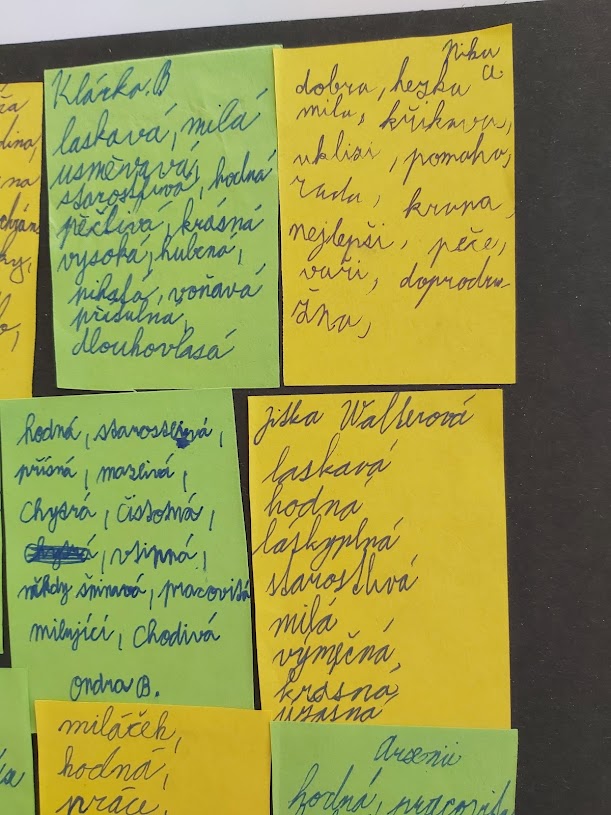 Klárka.B
laskavá, milá
usměvavá,
starostlivá, hodná
pěčlivá, krásná
vysoká, hubená,
voňavá
přísulná,
dlouhovlasá
nika
a.
dobra, hezka
mila, křikava,
uklisi, pomaha,
rada, krasna,
nejlepši, peče,
vaři, doprodru
žna,
hodná, starostlivá,
přísná, mazlivá,
Chytrá, čistotná,
vtipná,
někdy šminavá, pracovitá
milující, Chodivá
Ondra B.
Jitka Walterová
laskavá
hodná
láskyplná
starostlivá
milá
výměčná,
krásná,
úžasná,
miláček,
hodná,
práce,
Arsenii
hodná, pracovita